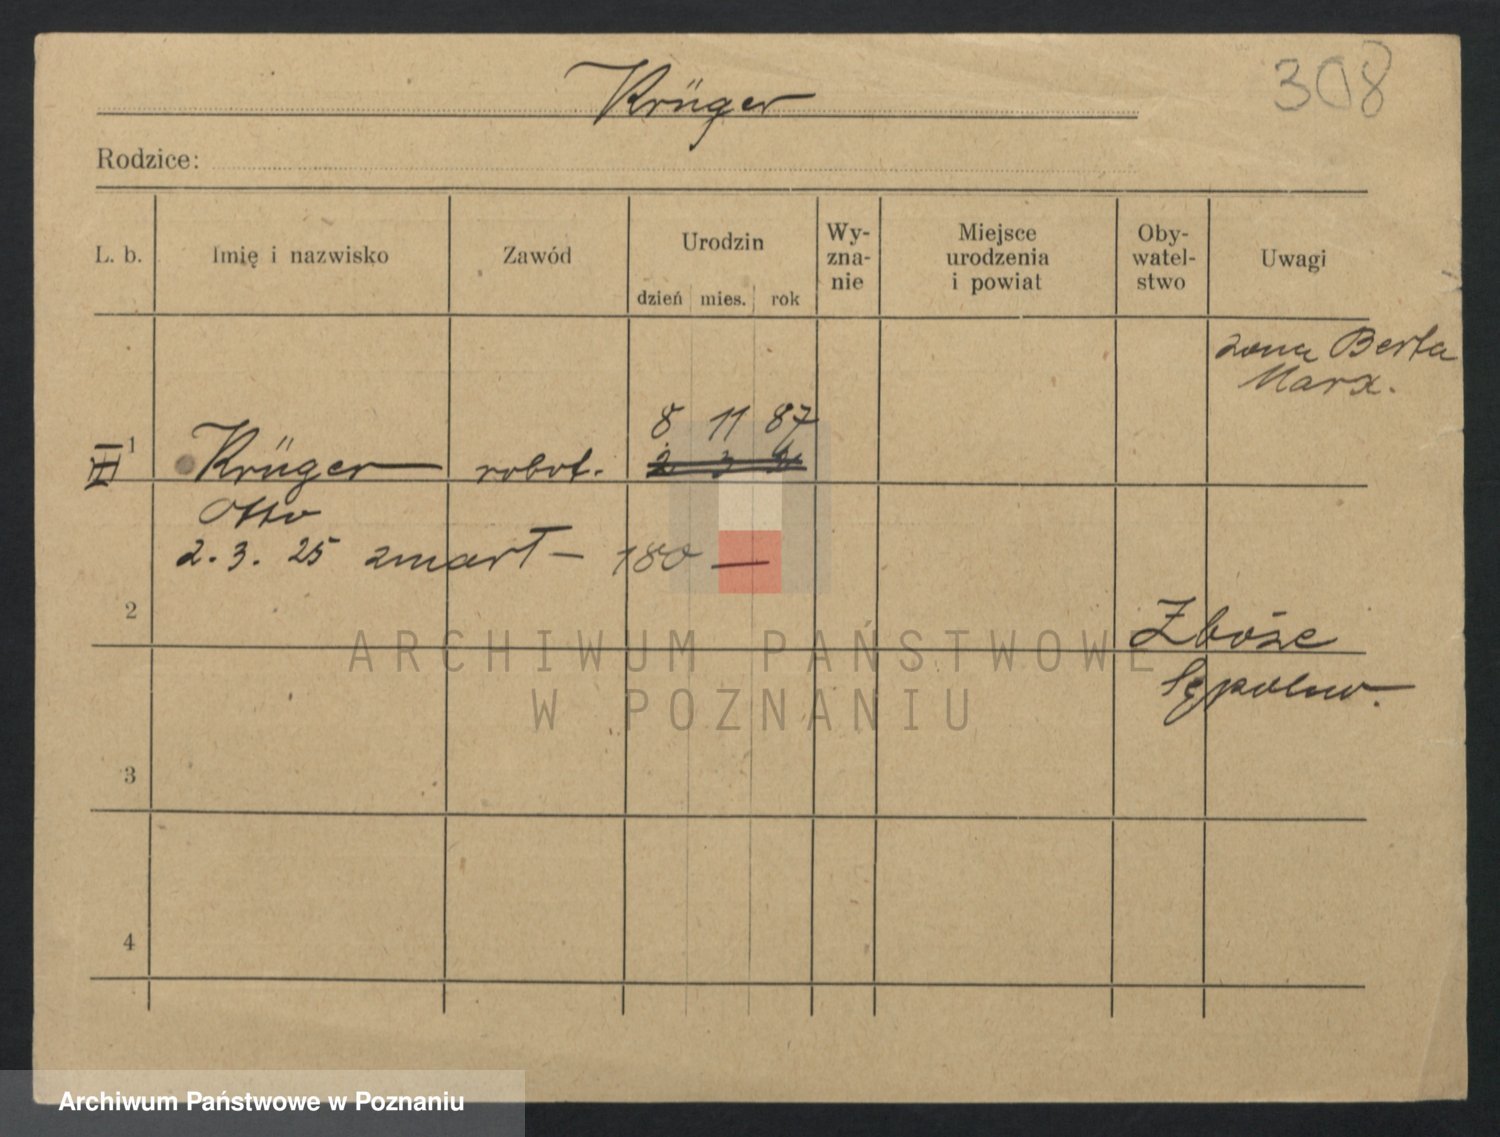 308
Krüger
Rodzice:
L. b.
Imię i nazwisko
Zawód
Urodzin
dzień mies. rok
Wy-
zna-
nie
Miejsce
urodzenia
i powiat
Oby-
watel-
stwo
Uwagi
żona Berta
Marx.
8 11 87
1 Krüger robot. 2 3
III
Otto
2. 3. 25 zmarł – 180 —
2
Zboże
Sępolno.
3
4
ARCHIWUM PAŃSTWOWE
W POZNANIU
Archiwum Państwowe w Poznaniu